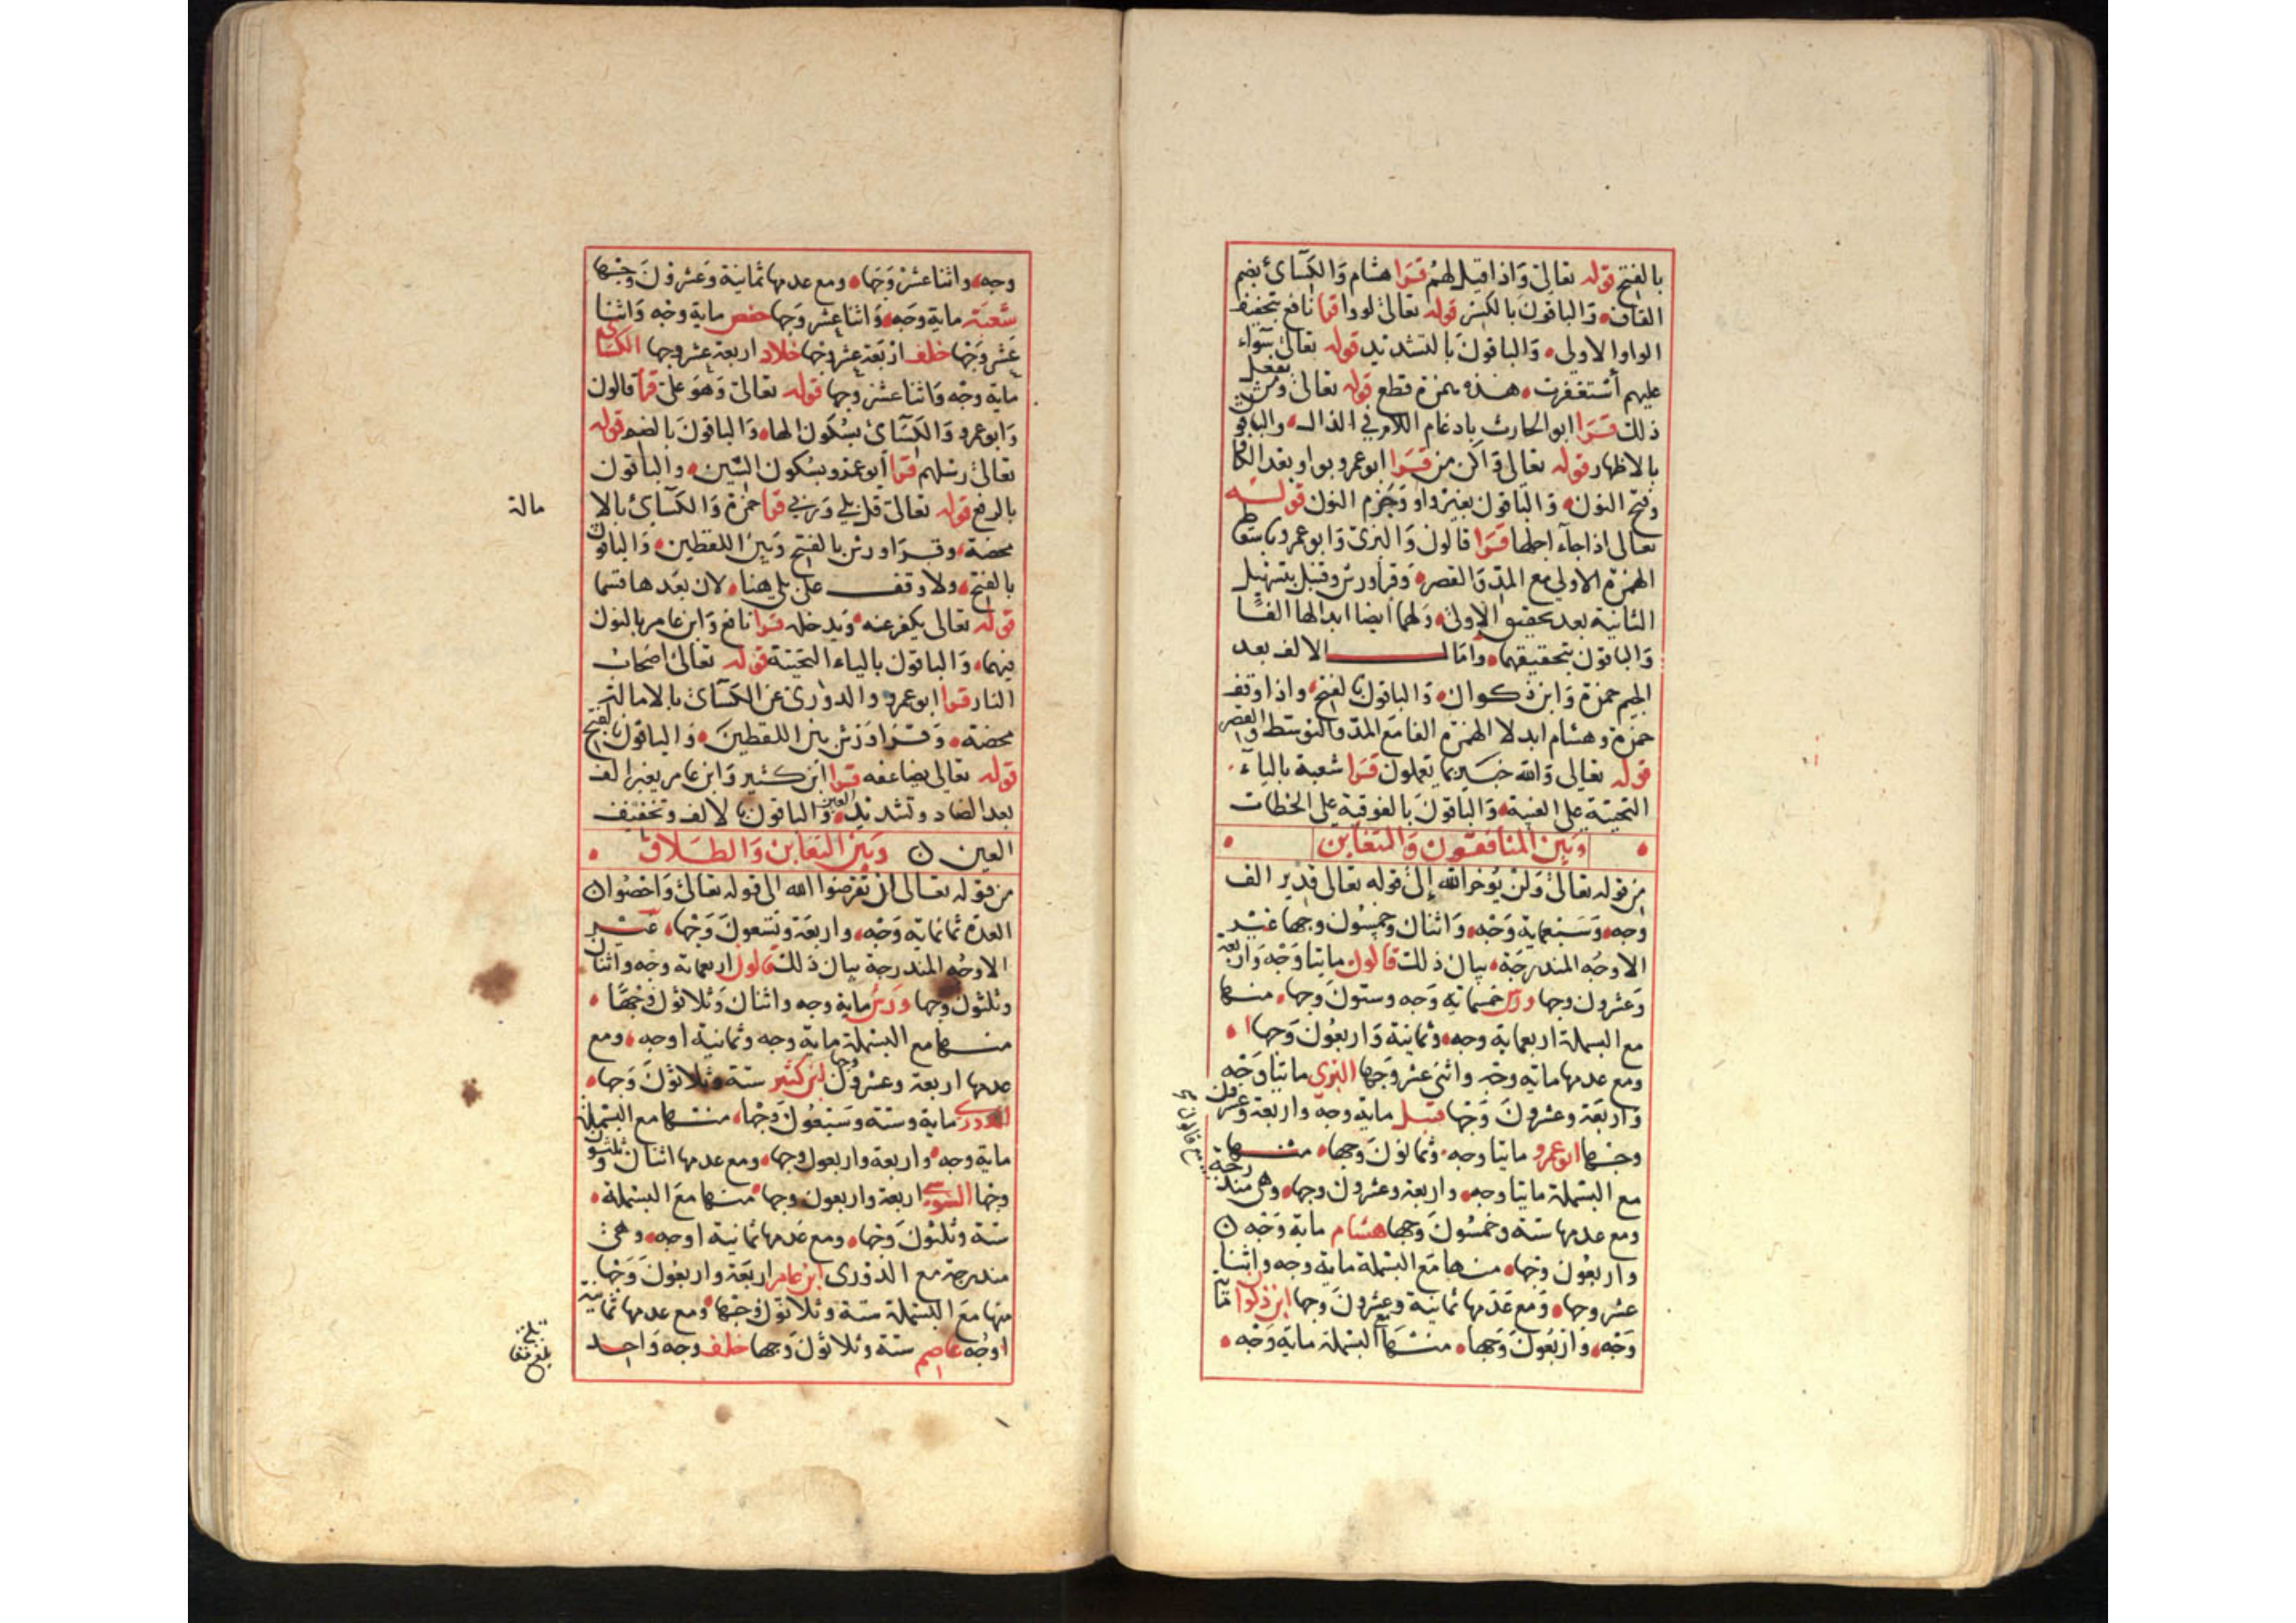 بالفتح قوله تعالى وَاذا قيل لهُم قَرَا هشام وَالكسَآئ بضم
القاف، وَالباقونَ بالكسْر قوله تعالى لووا قرا نافع بتخفيف
الواو الاولى، وَالباقونَ بالتشديد قوله تعالى سَوَاء
عليهم أستغفرت، هذه همزة قطع قوله تعالى ومن يفعل
ذلك قَرَا ابو الحارث بادغام اللام في الذال، والباقون
بالاظهار قوله تعالى وَاكن من قَرَا ابو عمرو بواو بعد الكاف
وفتح النون، وَالباقون بغير واو وَجَزم النون قولـه
تعالى اذا جآء اجلها قَرَا قالون وَالبزى وَابو عمرو باسقاط
الهمزة الاولى مع المدّ وَالقصر، وَقرأ ورش وقنبل بتسهيل
الثانية بعد تحقيق الاولى، وَلهما أيضا ابدالها الفًا
وَالباقون بتحقيقهما، وَامَالـــــ الالف بعد
الجيم حمزة وَابن ذكوان، وَالباقون بالفتح، واذا وقف
حَمزة وهشام ابدلا الهمزة الفا مَع المدّ وَالتوسّط والقصر
قوله تعالى وَالله خبـير بما تعملون قَرَا شعبة باليآء
التحتية على الغيبة، وَالباقونَ بالفوقية على الخطاب
وَبَين المنَافقون وَالتغابن
من قوله تعالىٰ وَلَنْ يُوخرَ الله إلى قوله تعالى قدير الف
وجه، وَسَبْعماية وَجْه، وَاثنان وخمسُون وجها غيْر
الاوجُه المندرجَة، بيان ذلك قالون مايتا وَجْه وَاربعة
وَعشرون وجها ورش خمسماية وَجه وستونَ وجها، منها
مع البسملة اربعماية وجه، وثمانية وَاربعُون وَجها
ومع عدمها ماية وجْه واثنى عشر وَجها البزي مايتا وَجْه
وَاربَعَة وعشرونَ وَجْها قنبل ماية وجه واربعة وعشرون
وجها ابو عمرو مايتا وجه، وثمانونَ وَجها، منها
مع البسملة مايتا وجه، واربعة وعشرون وجها، وَهى مندرجة
ومع عدمها ستة وخمسُونَ وجها هشام ماية وَجْه
واربعُون وَجها، منها مَع البسملة ماية وجه واثنا
عشر وجها، وَمع عَدَمها ثمانية وعشرونَ وجها ابن ذكوان ماية
وَجْه، وَازبَعُونَ وَجها، منها مع البسملة ماية وَجْه،
وجه، واثنا عشر وَجَها، ومع عدمها ثمانية وَعشرونَ وجْها
شعبَة ماية وَجه، وَاثنا عشر وَجها حفص ماية وجْه وَاثنا
عَشر وَجْها خلف ارْبَعَة عشر وجْها خلاد اربعة عشر وجها الكسَائى
ماية وجْه وَاثنا عشر وجها قوله تعالى وَهوَ على قرأ قالون
وَابو عمرو وَالكسَآئ بسُكون الهاء، وَالباقونَ بالضم قوله
تعالى رسْلهم قرا أبو عمْرو بسُكون السّين، والباقون
بالرفع قوله تعالى قل بلى وَربى قرا حَمْزة وَالكسَآئ بالا
مالة
محضة، وقـرَا ورش بالفتح وَبينَ اللفظين، وَالباقون
بالفتح، ولا وقفــ على بلى هنا، لان بَعْدها قسَما
قوله تعالى يكفر عنه، وَيدخله قَرَا نافع وَابن عامر بالنون
فيهما، وَالباقون بالياء التحتية قوله تعالى اصْحاب
النار قَرا ابو عمرو والدورى عن الكسَآئ بالامالة
محضة، وَقَـرَا وَرْش بين اللفظينَ، وَالباقون بالفتح
قوله تعالى يضاعفه قَرَا ابن كثير وَابن عامر بغير الف
بعد الضاد وتشديد العين، وَالباقون بالالف وتخفيف
العين وَبَيْنَ التغابن وَالطلاق
من قوله تعالى ان تقرضوا الله الى قوله تعالى وَاحْصُوا
العدة ثمانماية وَجْه، واربعَة وَتسْعونَ وَجْها، غيْـر
الاوجُه المندرجة بيان ذلك قالون اربعماية وجْه واثنان
وثلثون وجها ورش ماية وجه واثنان وَثلاثون وَجْهًا،
منها مع البسملة ماية وجه وثمانية اوجه، ومع
عدمها اربعة وعشرون وجها ابن كثير ستة وثلاثونَ وَجها،
الدورى ماية وستة وسَبعُونَ وَجْها، منها مع البسملة
ماية وجه، واربعة واربعون وجها، ومع عدمها اثنان وثلثون
وجْها السّوسى اربعة واربعون وجها، منها مَعَ البسملة،
ستة وثلثونَ وَجْها، ومع عَدمها ثمانية اوجه، وهى
مندرجة مع الدورى ابن عامر اربعَة واربعُونَ وَجْها
منها مَعَ البسملة ستة وثلاثونَ وجْها، ومع عدمها ثمانية
اوجُه عاصم ستة وثلاثونَ وَجها خلف وجه وَاحِد